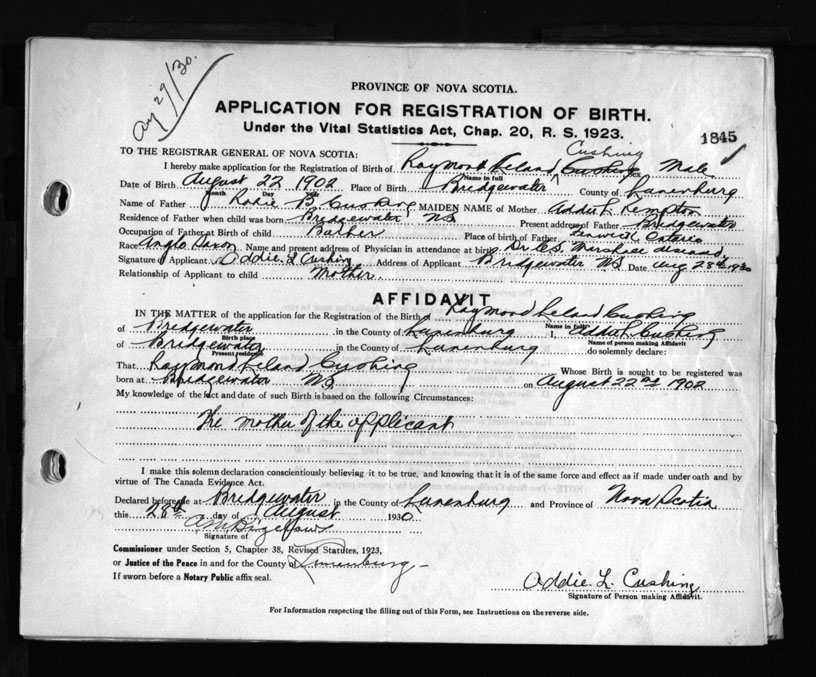 Aug 29/30.
PROVINCE OF NOVA SCOTIA.
APPLICATION FOR REGISTRATION OF BIRTH.
Under the Vital Statistics Act, Chap. 20, R. S. 1923.
1845
TO THE REGISTRAR GENERAL OF NOVA SCOTIA:
Cushing
I hereby make application for the Registration of Birth of Raymond Leland Cushing Sex Male
Name in full
Date of Birth August 22 1902 Place of Birth Bridgewater County of Lunenburg
Month Day Year
Name of Father B Cushing MAIDEN NAME of Mother Addie L Kempton
Residence of Father when child was born Bridgewater N.S. Present address of Father Bridgewater
Occupation of Father at Birth of child Barber Place of birth of Father Ontario
Race Anglo Saxon Name and present address of Physician in attendance at birth Dr. C.S. Marshall deceased
Signature of Applicant Addie L Cushing Address of Applicant Bridgewater N.S. Date Aug 28th 1930
Relationship of Applicant to child Mother
AFFIDAVIT
IN THE MATTER of the application for the Registration of the Birth of Raymond Leland Cushing
Name in full
of Bridgewater in the County of Lunenburg I, Addie L Cushing
Birth place
Name of person making Affidavit
of Bridgewater in the County of Lunenburg do solemnly declare:
Present residence
That Raymond Leland Cushing Whose Birth is sought to be registered was
born at Bridgewater N.S. on August 22nd 1902
My knowledge of the fact and date of such Birth is based on the following Circumstances:
The mother of the applicant
I make this solemn declaration conscientiously believing it to be true, and knowing that it is of the same force and effect as if made under oath and by
virtue of The Canada Evidence Act.
Declared before me at Bridgewater in the County of Lunenburg and Province of Nova Scotia
this 28th day of August 1930
Signature of
Commissioner under Section 5, Chapter 38, Revised Statutes, 1923,
or Justice of the Peace in and for the County of Lunenburg
If sworn before a Notary Public affix seal.
Addie L. Cushing
Signature of Person making Affidavit.
For Information respecting the filling out of this Form, see Instructions on the reverse side.